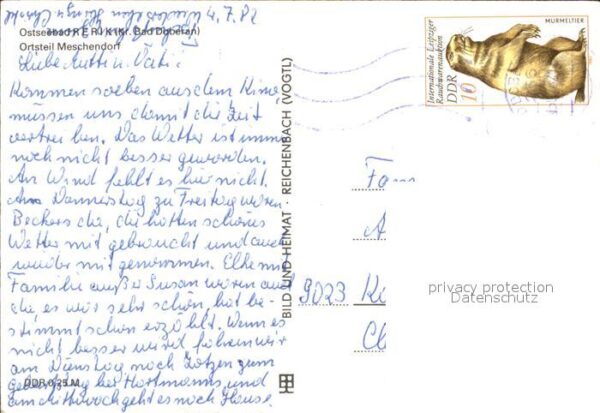 4.7.82
Ostseebad RERIK (Kr. Bad Doberan)
Ortsteil Meschendorf
Liebe Mutti u. Vati!
Kommen soeben aus dem Kino,
müssen uns damit die Zeit
vertreiben. Das Wetter ist immer
noch nicht besser geworden.
An Wind fehlt es hier nicht.
Am Donnerstag zu Freitag waren
Beckers da, die hatten schönes
Wetter mit gebraucht und auch
wieder mit genommen. Elke mit
Familie außer Susan waren auch
da, es war sehr schön, hat be-
stimmt schon erzählt. Wenn es
nicht besser wird fahren wir
am Dienstag noch Zotzen zum
Geburtstag bei Hartmanns und
am Mittwoch geht es nach Hause.
DDR 0,25 M
BILD UND HEIMAT · REICHENBACH (VOGTL)
Internationale Leipziger
Rauchwarenauktion
DDR
10
MURMELTIER
Fam
A
9023 K
C
privacy protection
Datenschutz